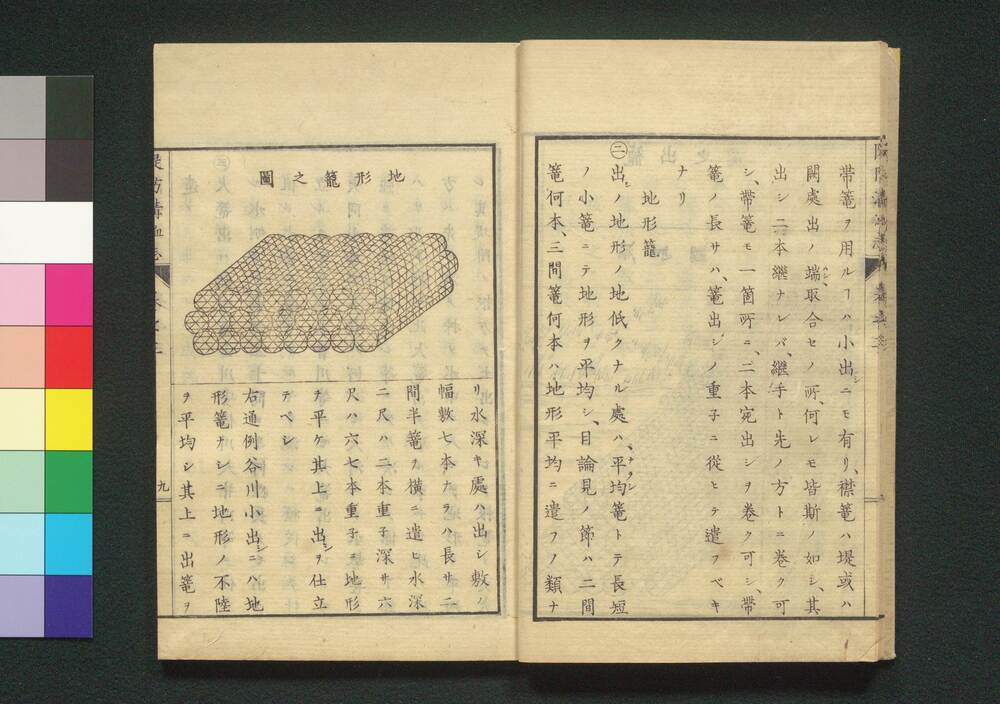 帯篭ヲ用ルヿハ小出シニモ有リ、襟篭ハ堤或ハ
関處出ノ端シ取合セノ所、何レモ皆斯ノ如シ、其
出シ二本継ナレバ、継手ト先ノ方トニ巻ク可
シ、帯篭モ一箇所ニ、二本宛出シヲ巻ク可シ、帯
篭ノ長サハ、篭出シノ重子ニ從ヒテ遣フベキ
ナリ
地形籠
㊁出シノ地形ノ地低クナル處ハ、平均篭トテ長短
ノ小篭ニテ地形ヲ平均シ、目論見ノ節ハ二間
篭何本、三間篭何本ハ地形平均ニ遣フノ類ナ
地形籠之圖
リ水深キ處ハ出シ敷
幅敷七本ナラハ長サ二
間半篭ヲ横ニ遣ヒ水深
二尺ハ二本重子深サ六
尺ハ六七本重子ニ地形
ヲ平ケ其上ニ出シヲ仕立
テベシ
右通例谷川小出シニハ地
形篭ナシニ地形ノ不陸
ヲ平均シ其上ニ出篭ヲ
九